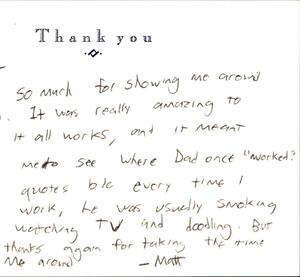 Thank you
So much for showing me around
. It was really amazing to
it all works, and it meant
me to see where Dad once "worked".
quotes b/c every time I
work, he was usually smoking
watching TV and doodling. But
thanks again for taking the time
me around - Matt